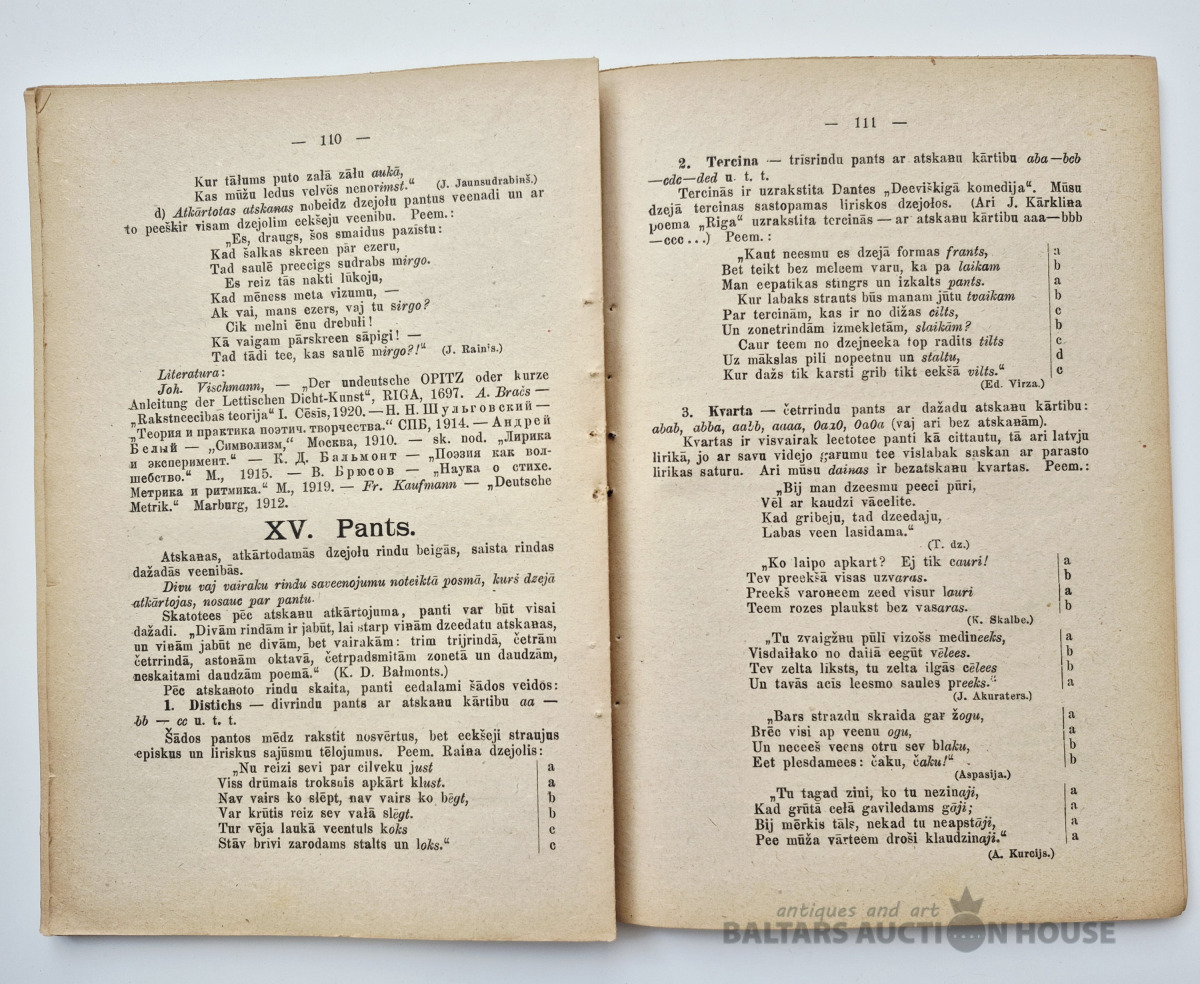 — 110 —
Kur tāļums puto zaļā zāļu aukā,
Kas mūžu ledus velvēs nenorimst.“ (J. Jaunsudrabiņš.)
d) Atkārtotas atskaņas nobeidz dzejoļu pantus veenadi un ar
to peešķir visam dzejolim eekšeju veenibu. Peem.:
„Es, draugs, šos smaidus pazistu:
Kad šalkas skreen pār ezeru,
Tad saulē preecigs sudrabs mirgo.
Es reiz tās nakti lūkoju,
Kad mēness meta vizumu, —
Ak vai, mans ezers, vaj tu sirgo?
Cik melni ēnu drebuļi!
Kā vaigam pārskreen sāpigi! —
Tad tādi tee, kas saulē mirgo?!“ (J. Rainis.)
Literatura:
Joh. Vischmann, — „Der undeutsche OPITZ oder kurze
Anleitung der Lettischen Dicht-Kunst“, RIGA, 1697. A. Bračs —
„Rakstneecibas teorija“ I. Cēsis, 1920. — Н. Н. Шульговский —
„Теория и практика поэтич. творчества.“ СПБ, 1914. — Андрей
Белый — „Символизм,“ Москва, 1910. — sk. nod. „Лирика
и эксперимент.“ — К. Д. Бальмонт — „Поэзия как вол-
шебство.“ М., 1915. — В. Брюсов — „Наука о стихе.
Метрика и ритмика.“ М., 1919. — Fr. Kaufmann — „Deutsche
Metrik.“ Marburg, 1912.
XV. Pants.
Atskaņas, atkārtodamās dzejoļu rindu beigās, saista rindas
dažadās veenibās.
Divu vaj vairaku rindu saveenojumu noteiktā posmā, kurš dzejā
atkārtojas, nosauc par pantu.
Skatotees pēc atskaņu atkārtojuma, panti var būt visai
dažadi. „Divām rindām ir jabūt, lai starp viņām dzeedatu atskaņas,
un viņām jabūt ne divām, bet vairakām: trim trijrindā, četrām
četrrindā, astoņām oktavā, četrpadsmitām zonetā un daudzām,
neskaitami daudzām poemā.“ (K. D. Baļmonts.)
Pēc atskaņoto rindu skaita, panti eedalami šādos veidos:
1. Distichs — divrindu pants ar atskaņu kārtibu aa —
bb — cc u. t. t.
Šādos pantos mēdz rakstit nosvērtus, bet eekšeji straujus
episkus un liriskus sajūsmu tēlojumus. Peem. Raiņa dzejolis:
„Nu reizi sevi par cilveku just a
Viss drūmais troksnis apkārt klust. a
Nav vairs ko slēpt, nav vairs ko bēgt, b
Var krūtis reiz sev vaļā slēgt. b
Tur vēja laukā veentuls koks c
Stāv brivi zarodams stalts un loks.“ c
— 111 —
2. Tercina — trisrindu pants ar atskaņu kārtibu aba—bcb
—cdc—ded u. t. t.
Tercinās ir uzrakstita Dantes „Deevišķigā komedija“. Mūsu
dzejā tercinas sastopamas liriskos dzejoļos. (Ari J. Kārkliņa
poema „Riga“ uzrakstita tercinās — ar atskaņu kārtibu aaa—bbb
—ccc...) Peem.:
„Kaut neesmu es dzejā formas frants, a
Bet teikt bez meleem varu, ka pa laikam b
Man eepatikas stingrs un izkalts pants. a
Kur labaks strauts būs manam jūtu tvaikam b
Par tercinām, kas ir no dižas cilts, c
Un zonetrindām izmekletām, slaikām? b
Caur teem no dzejneeka top radits tilts c
Uz mākslas pili nopeetnu un staltu, d
Kur dažs tik karsti grib tikt eekšā vilts.“ c
(Ed. Virza.)
3. Kvarta — četrrindu pants ar dažadu atskaņu kārtibu:
abab, abba, aabb, aaaa, 0aa0, 0a0a (vaj ari bez atskaņām).
Kvartas ir visvairak leetotee panti kā cittautu, tā ari latvju
lirikā, jo ar savu videjo garumu tee vislabak saskan ar parasto
lirikas saturu. Ari mūsu dainas ir bezatskaņu kvartas. Peem.:
„Bij man dzeesmu peeci pūri,
Vēl ar kaudzi vācelite.
Kad gribeju, tad dzeedaju,
Labas veen lasidama.“
(T. dz.)
„Ko laipo apkart? Ej tik cauri! a
Tev preekšā visas uzvaras. b
Preekš varoneem zeed visur lauri a
Teem rozes plaukst bez vasaras. b
(K. Skalbe.)
„Tu zvaigžņu pūli vizošs medineeks, a
Visdaiļako no daiļā eegūt vēlees. b
Tev zelta liksts, tu zelta ilgās cēlees b
Un tavās acis leesmo saules preeks.“ a
(J. Akuraters.)
„Bars strazdu skraida gar žogu, a
Brēc visi ap veenu ogu, a
Un neceeš veens otru sev blaku, b
Eet plesdamees: čaku, čaku!“ b
(Aspasija.)
„Tu tagad zini, ko tu nezinaji, a
Kad grūtā ceļā gaviledams gāji; a
Bij mērķis tāls, nekad tu neapstāji, a
Pee mūža vārteem droši klaudzinaji.“ a
(A. Kurcijs.)
antiques and art
BALTARS AUCTION HOUSE